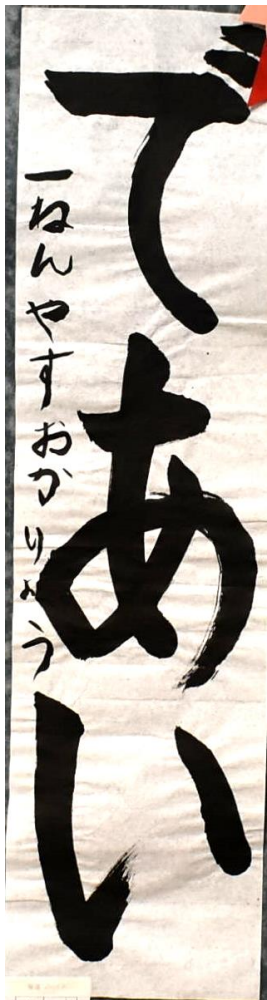 であい
一ねんやすおかりょう